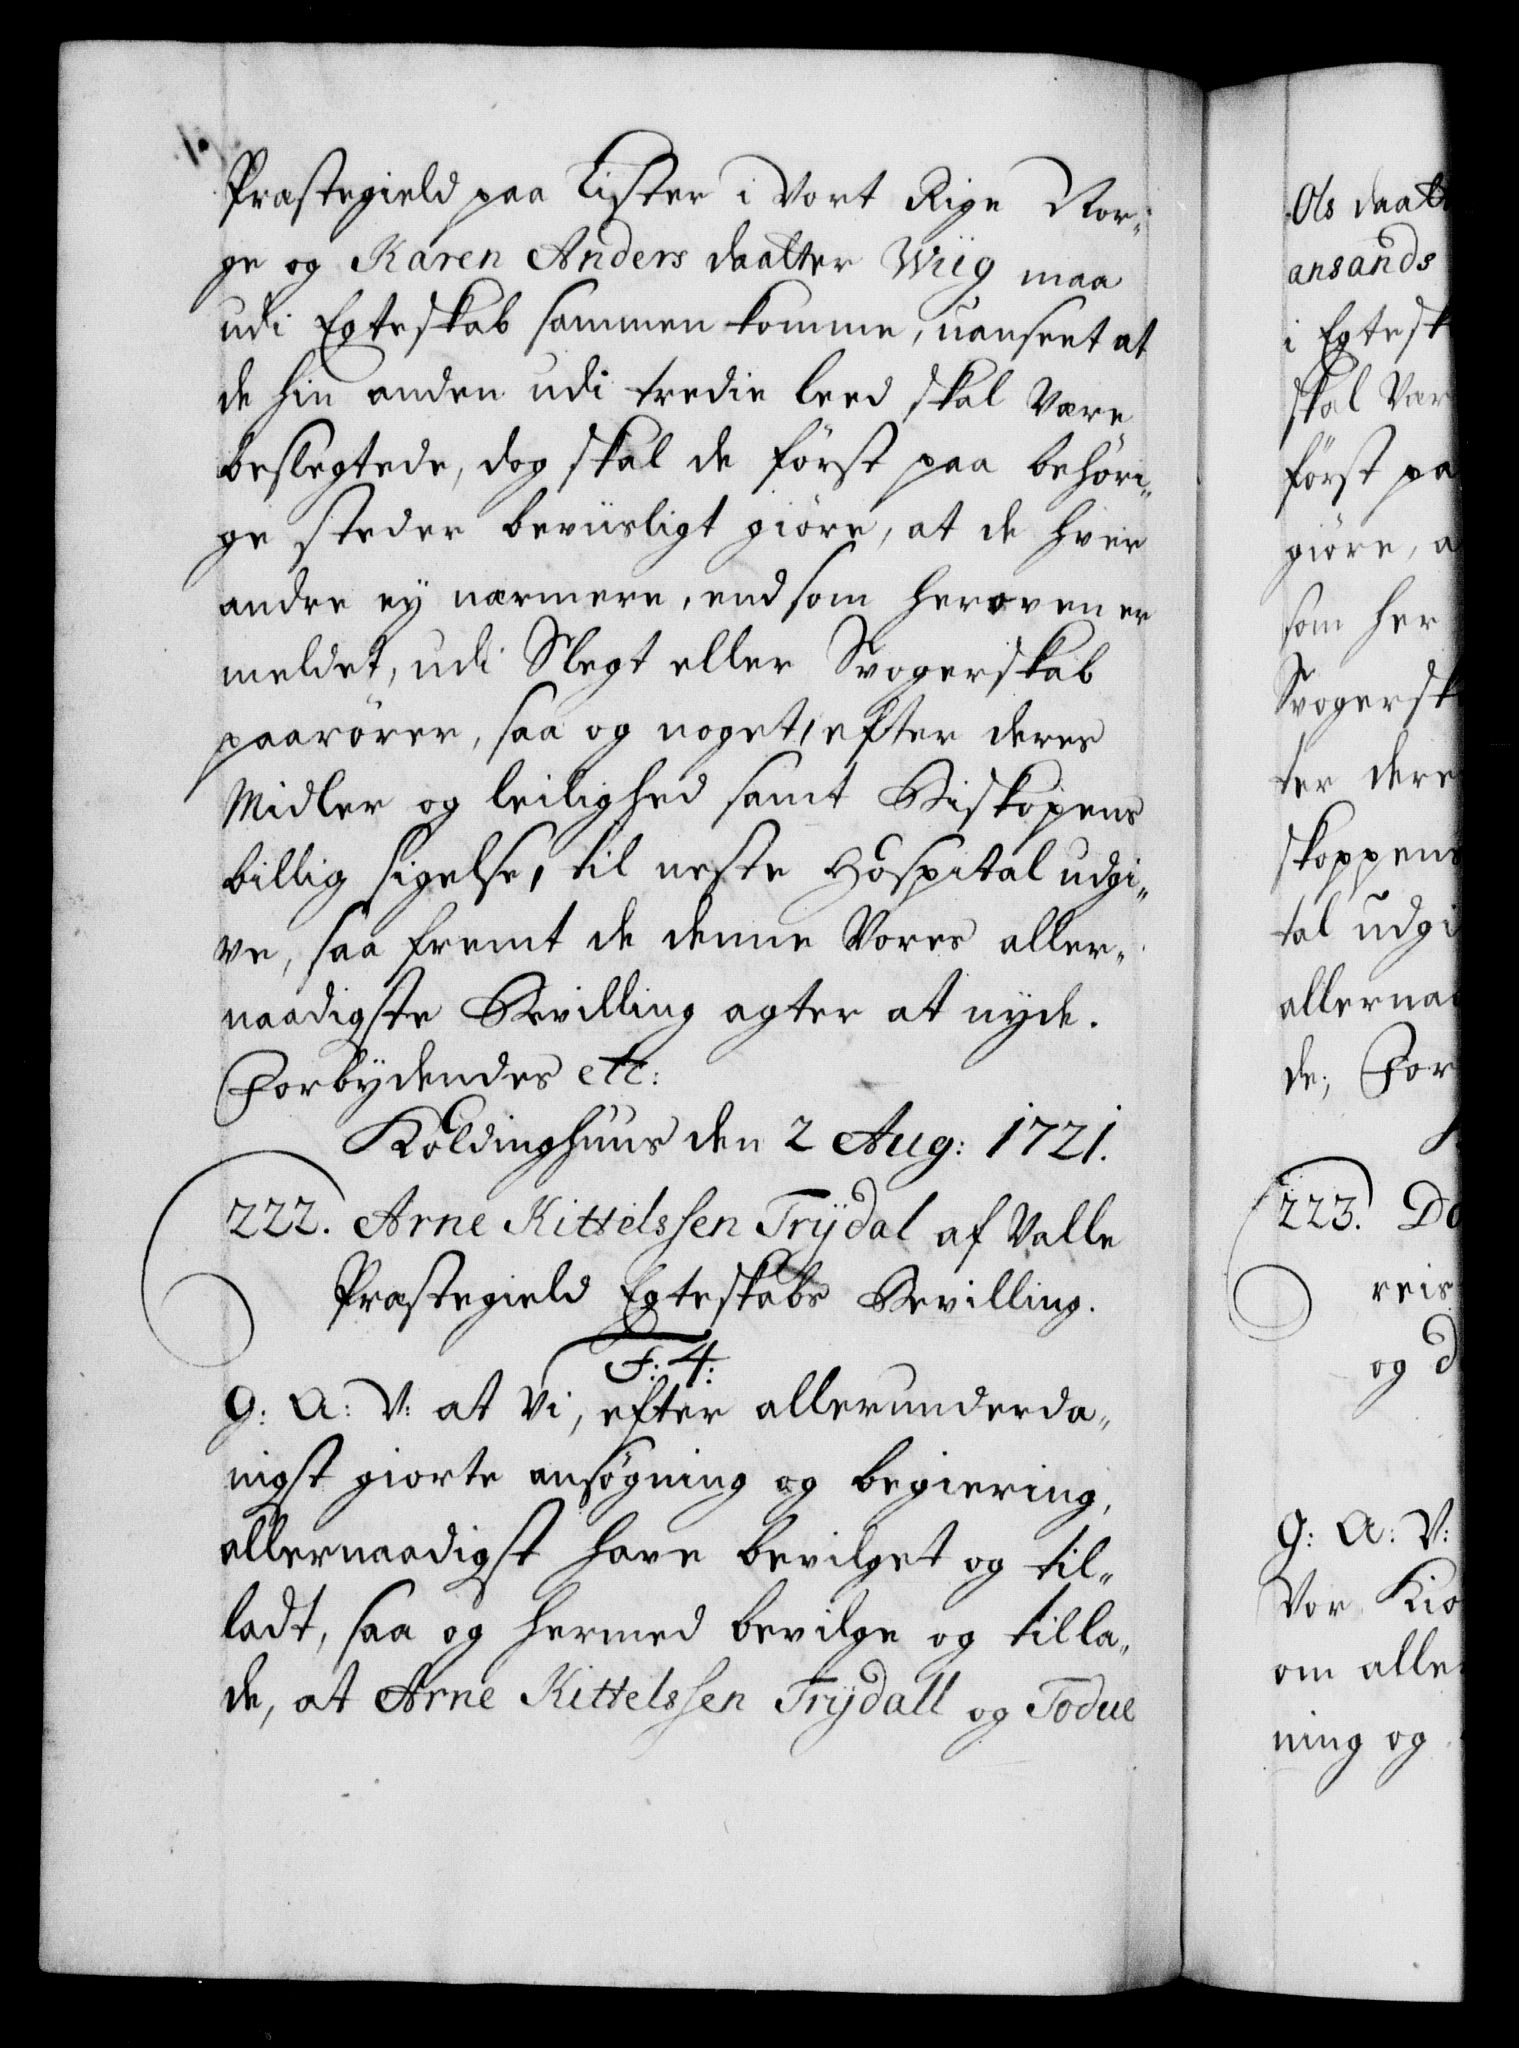 Præstegield paa Lister i Vort Rige Nor-
ge og Karen Anders daatter Wiig maa
udi Egteskab sammenkomme, uanseet at
de hin anden udi tredie leed skal være
beslegtede, dog skal de först paa behöri-
ge steder beviisligt giöre, at de hver
andre ey nærmere, end som heroven er
meldet, udi Slegt eller Svogerskab
paarörer, saa og noget, efter deres
Midler og leilighed samt Biskopens
billig sigelse, til neste Hospital udgi-
ve, saa fremt de denne Vores aller-
naadigste Bevilling agter at nyde.
Forbÿdendes etc:
Koldinghuus den 2 Aug: 1721.
222. Arne Kittelssen Trÿdal af Valle
Præstegield Egteskabs Bevilling.
F: 4:
G: A: V: at Vi, efter allerunderda-
nigst giorte ansögning og begiering,
allernaadigst have bevilget og til-
ladt, saa og hermed bevilge og tilla-
de, at Arne Kittelssen Trÿdall og Todue
Ols daatt
ansands
i Egtesk
skal vær
först pa
giöre, a
som her
Svogersk
ter dere
skoppens
tal udgi
allernaa
de, For
223. Do
reis
og d
G: A: V:
Vor Kio
om alle
ning og